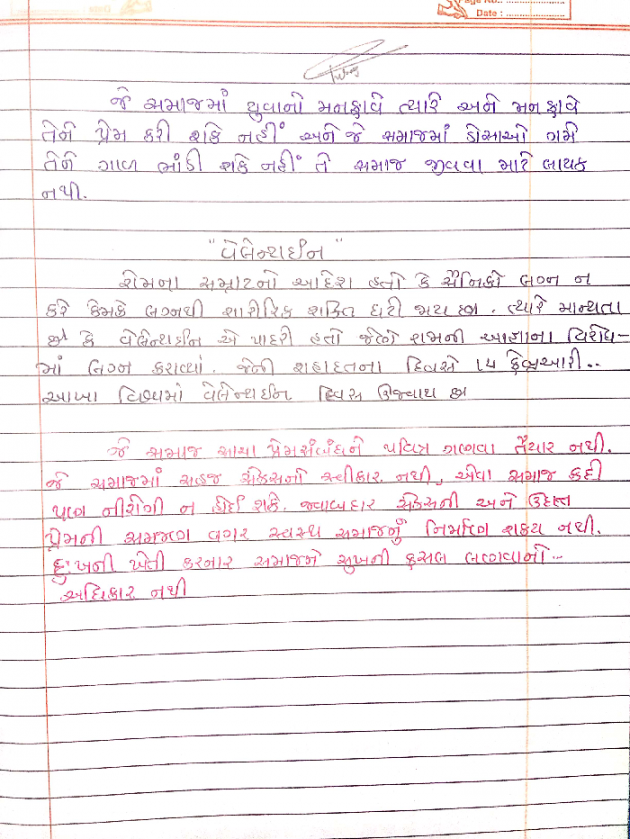 Page No.: ................
Date : ................
જે સમાજમાં યુવાનો મનફાવે ત્યારે અને મન ફાવે
તેને પ્રેમ કરી શકે નહીં અને જે સમાજમાં ડોસાઓ ગમે
તેને ગાળ ભાંડી શકે નહીં તે સમાજ જીવવા માટે લાયક
નથી.
"વેલેન્ટાઈન"
રોમના સમ્રાટનો આદેશ હતો કે સૈનિકો લગ્ન ન
કરે કેમકે લગ્નથી શારીરિક શક્તિ ઘટી જાય છે. ત્યારે માન્યતા
છે કે વેલેન્ટાઈન એ પાદરી હતો જેણે રોમની આજ્ઞાના વિરોધ-
માં લગ્ન કરાવ્યાં. જેની શહાદતના દિવસે 14 ફેબ્રુઆરી..
આખા વિશ્વમાં વેલેન્ટાઈન દિવસ ઉજવાય છે
જે સમાજ સાચા પ્રેમસંબંધને પવિત્ર ગણવા તૈયાર નથી.
જે સમાજમાં સહજ સેકસનો સ્વીકાર નથી, એવા સમાજ કદી
પણ નીરોગી ન હોઈ શકે. જવાબદાર સેકસની અને ઉદાત્ત
પ્રેમની સમજણ વગર સ્વસ્થ સમાજનું નિર્માણ શક્ય નથી.
દુ:ખની ખેતી કરનાર સમાજને સુખની ફસલ લણવાનો..
અધિકાર નથી